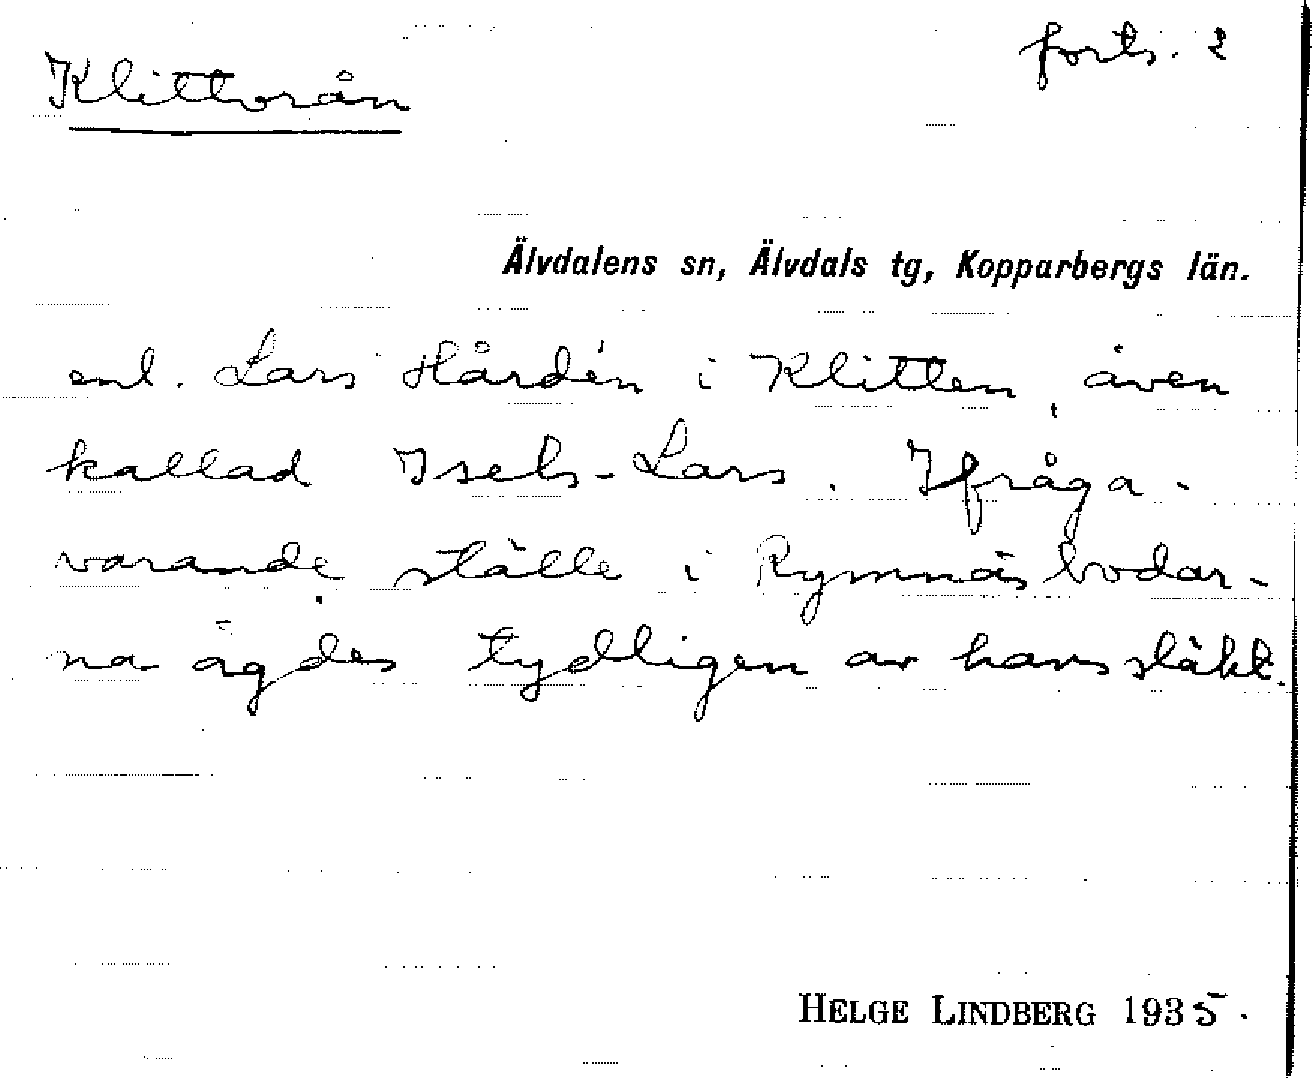 forts. 2
Klittorån
Älvdalens sn, Älvdals tg, Kopparbergs län.
enl. Lars Hårdén i Klitten, även
kallad Isels-Lars. Ifråga-
varande ställe i Rymnäsbodar-
na ägdes tydligen av hans släkt.
HELGE LINDBERG 1935.